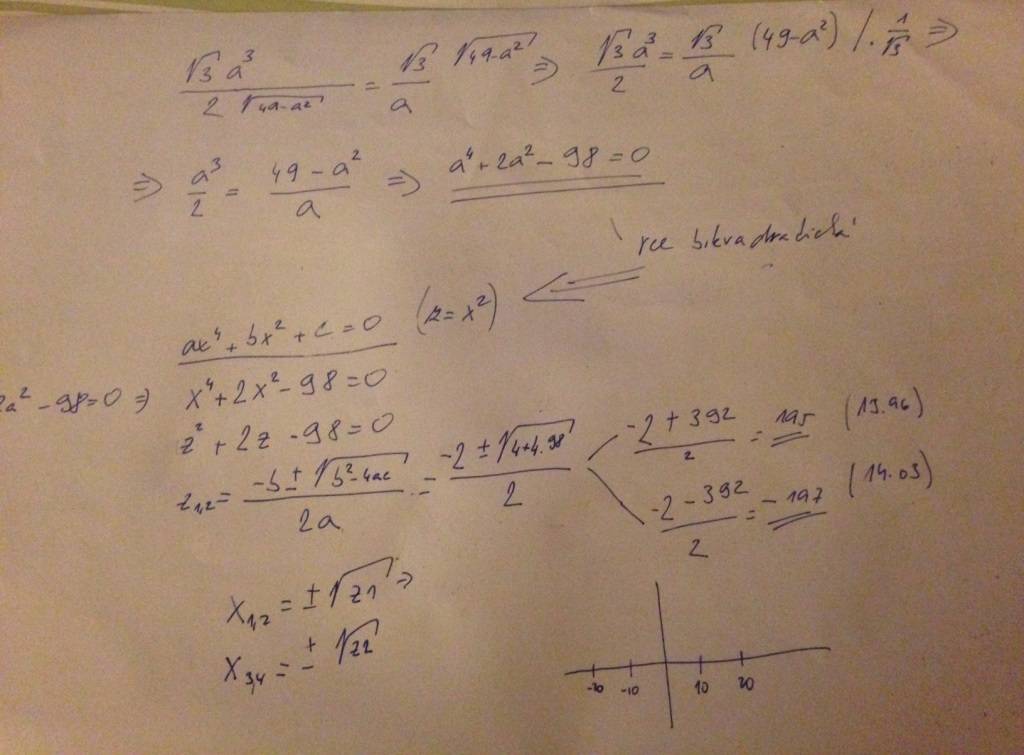 √3 a³ / 2 √49-a² = √3 / a √49-a² => √3 a³ / 2 = √3 / a (49-a²) /. 1/√3 =>
=> a³/2 = 49 - a² / a => a⁴ + 2a² - 98 = 0
rce bikvadratická
ax⁴ + bx² + c = 0 (z = x²)
2a² - 98 = 0 => x⁴ + 2x² - 98 = 0
z² + 2z - 98 = 0
z1,2 = -b ± √b²-4ac / 2a = -2 ± √4+4.98 / 2
-2 + 392 / 2 = 195 (13.96)
-2 - 392 / 2 = -197 (14.03)
x1,2 = ± √z1 =>
x3,4 = ± √z2
-20 -10 10 20